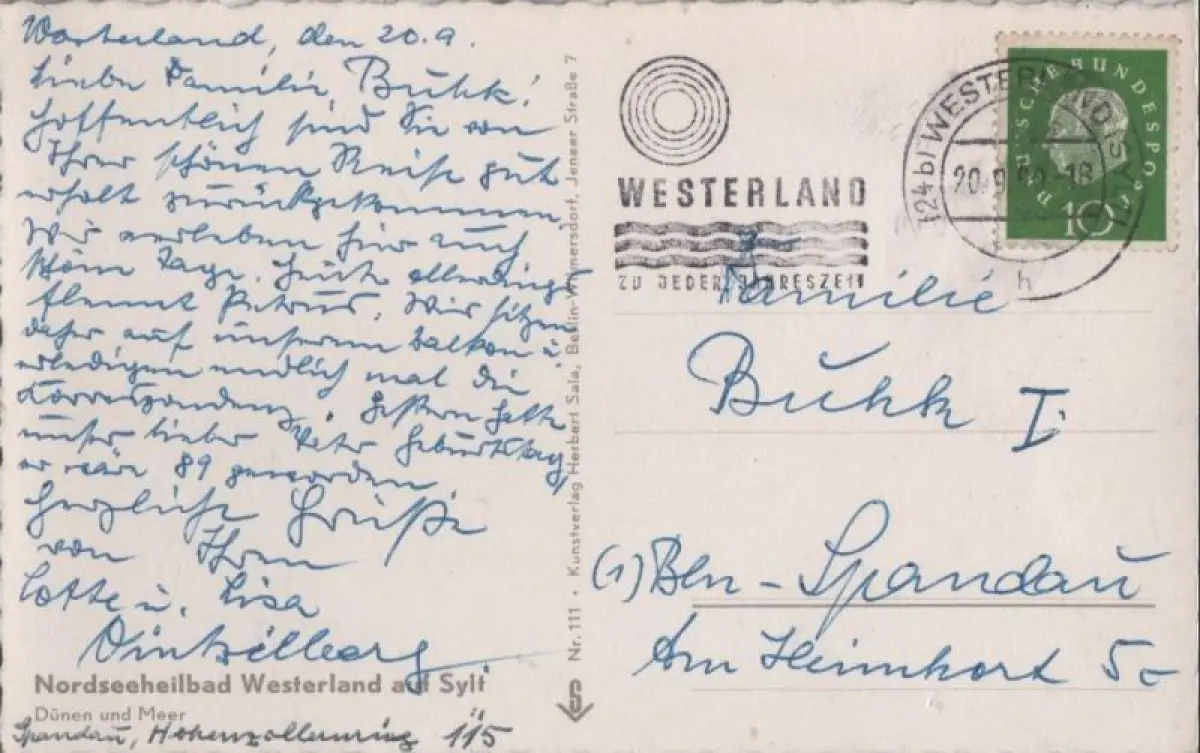 Westerland, den 20.9.
Liebe Familie Buhk!
Hoffentlich sind Sie von
Ihrer schönen Reise gut
erholt zurückgekommen.
Wir verleben hier auch
schöne Tage. Heute allerdings
flennt Petrus. Wir sitzen
daher auf unserem Balkon u.
erledigen endlich mal die
Korrespondenz. Gestern hatte
unser lieber Vater Geburtstag,
er wäre 89 geworden
Herzliche Grüße
von Ihren
Lotte u. Lisa
Nordseeheilbad Westerland auf Sylt
Dünen und Meer
Spandau, Hohenzollernring 115
Nr. 111 • Kunstverlag Herbert Sala, Berlin-Wilmersdorf, Jenaer Straße 7
WESTERLAND
ZU JEDER JAHRESZEIT
(24b) WESTERLAND SYLT
20.9. -18
h
DEUTSCHE BUNDESPOST
10
Familie
Buhk I.
(1) Bln - Spandau
Am Heimhort 5c